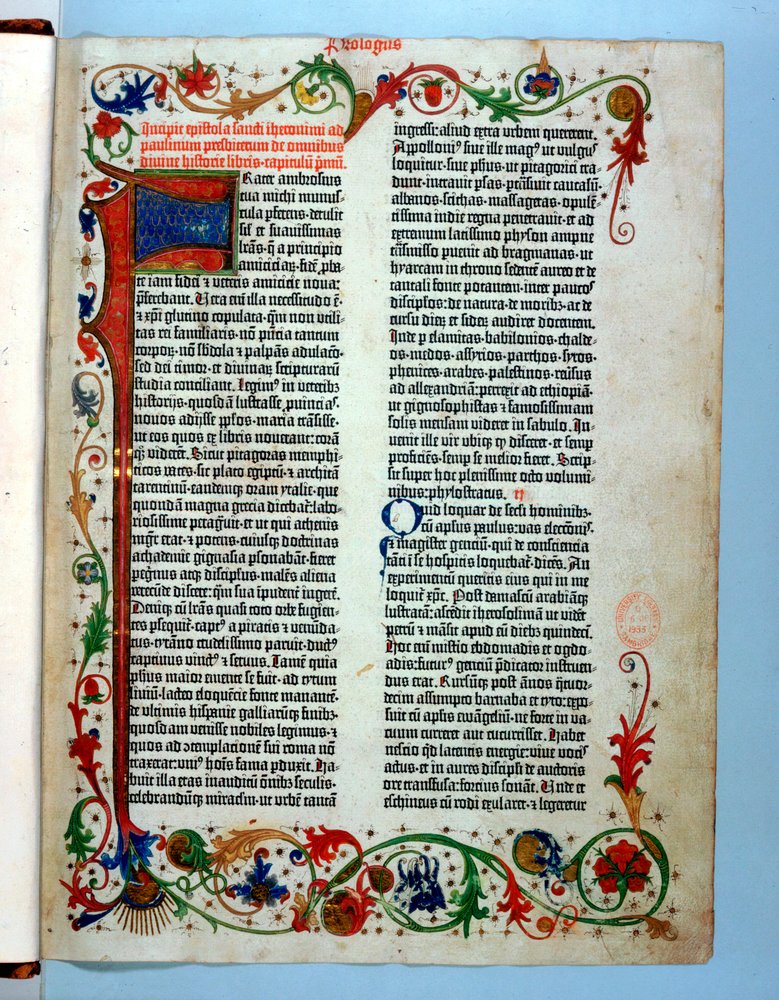 Prologus
Incipit epistola sancti iheronimi ad
paulinum presbiterum de omnibus
divine historie libris·capitulū pͥmū.
Frater ambrosius
tua michi munus-
cula pferens·detulit
sil' et suavissimas
lrās·q̄ a principio
amicicie
te iam fidei et veteris amicicie nova:
pferebant. Vera eni illa necessitudo ē·
et xpi glutino copulata·qm non utili-
tas rei familiaris·nō pn̄cia tantum
corpoꝝ·nō sbdola et palpās adulacō·
sed dei timor·et divinaꝝ scripturarū
studia conciliant. Legimꝰ in veteribꝫ
historijs·quosdā lustrasse pvincias·
novos adijsse pplos·maria trāsisse·
ut eos quos ex libris noverant: corā
qꝫ viderēt. Sicut pitagoras memphi-
ticos vates·sic plato egiptū·et architā
tarentinū·eandemqꝫ oram ytalie·que
quondā magna grecia dicebat͛: labo-
riosissime peragͣvit·et ut qui athenis
mgr̄ erat·et potens·cuiusqꝫ doctrinas
achademie gignasia psonabāt·fieret
pegͥnus atqꝫ discipulus·malēs aliena
verecūde discere: qm̄ sua īpudent͛ ingerē.
Deniqꝫ cū lrās quasi toto orbe fugien-
tes pseqͥt͛·captꝰ a piratis et venūda-
tus·tyrāno crudelissimo paruit·ductꝰ
captivus vinctꝰ et servus. Tamē quia
phūs maior emente se fuit·ad tytum
liviū·lacteo eloquētie fonte manantē·
de ultimis hispanie galliarūqꝫ finibꝫ·
quosdam venisse nobiles legimus·et
quos ad ꝯtemplacionē sui roma nō
traxerat: uniꝰ hoīs fama pduxit. Ha-
buit illa etas inauditū oībꝫ seculis·
celebrandūqꝫ miraclm·ut urbē tantā
ingressi: aliud extra urbem quererent.
Apolloniꝰ sive ille magꝰ ut vulgꝰ
loquitur·sive phūs·ut pitagorici tra-
dunt·intravit psas·ptrāsivit caucasū·
albanos·scithas·massagetas·opulē-
tissima indie regna penetravit·et ad
extremum latissimo physon amne
trāsmisso puenit ad bragmanas·ut
hyarcam in throno sedentē aureo et de
tantali fonte potantem·inter paucos
discipulos: de natura·de moribꝫ·ac de
cursu dieꝝ et sideꝝ audiret docentem.
Inde p elamitas·babilonios·chalde-
os·medos·assyrios·parthos·syros·
phenices·arabes·palestinos·reūsus
ad allexandriā: perrexit ad ethiopiā·
ut gignosophistas et famosissimam
solis mensam videret in sabulo. In-
venit ille vir ubiqꝫ qd̄ disceret·et semp
proficiēs·semp se melior fieret. Scrip-
sit super hoc plenissime octo volumi-
nibus: phylostratus. II
Quid loquar de secli hominibꝫ·
cū apl'us paulus: vas electōnis·
et magister gentiū·qui de consciencia
tāti ī se hospitis loquebat͛·dicēs. An
experimentū queritis eius qui in me
loquit͛ xpc. Post damascū arabiāqꝫ
lustratā: ascēdit iherosolimā ut vidēt
petrū et māsit apud eū diebꝫ quindeci.
Hoc enī misterio ebdomadis et ogdo-
adis: futurꝰ gentiū pdicator instruen-
dus erat. Rursūqꝫ post ānos qͣtuor-
decim assumpto barnaba et tyto: expo-
suit cū aplis ewāgeliū·ne forte in va-
cuum curreret aut cucurrisset. Habet
nescio qd̄ latentis energie: vive vocis
actus·et in aures discipli de auctoris
ore transfusa: forcius sonat. Unde et
eschineus cū rodi exularet·et legeretur
UNIVERSITY LIBRARY
1933
CAMBRIDGE